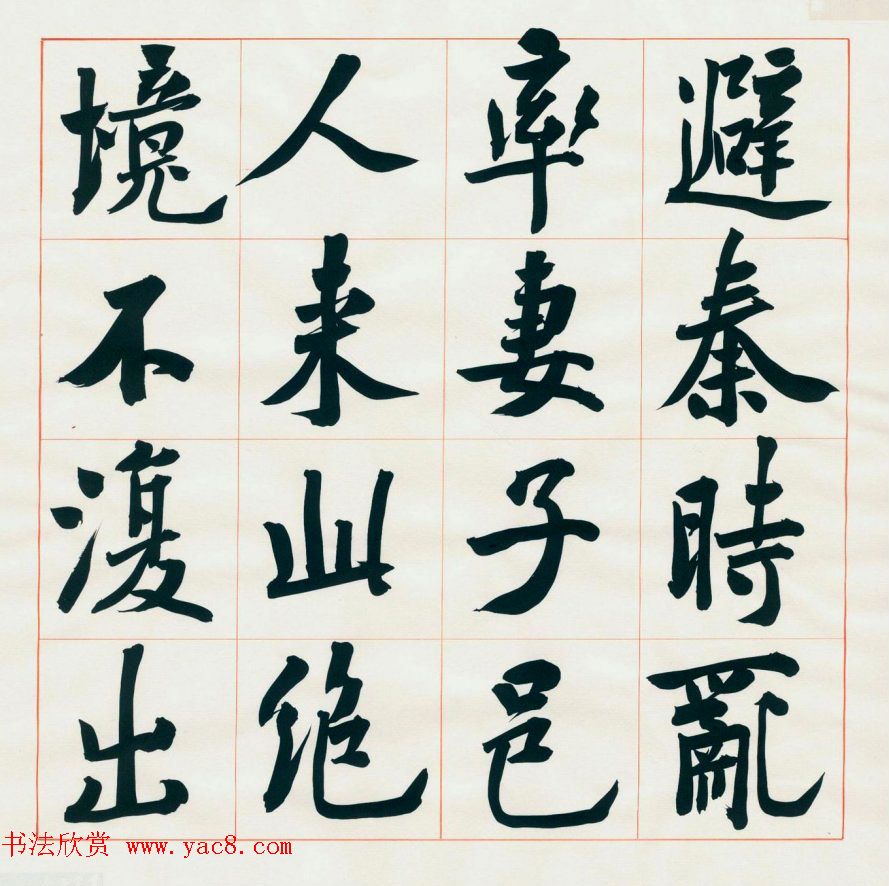 避秦時亂
率妻子邑
人来此絶
境不復出
书法欣赏 www.yac8.com